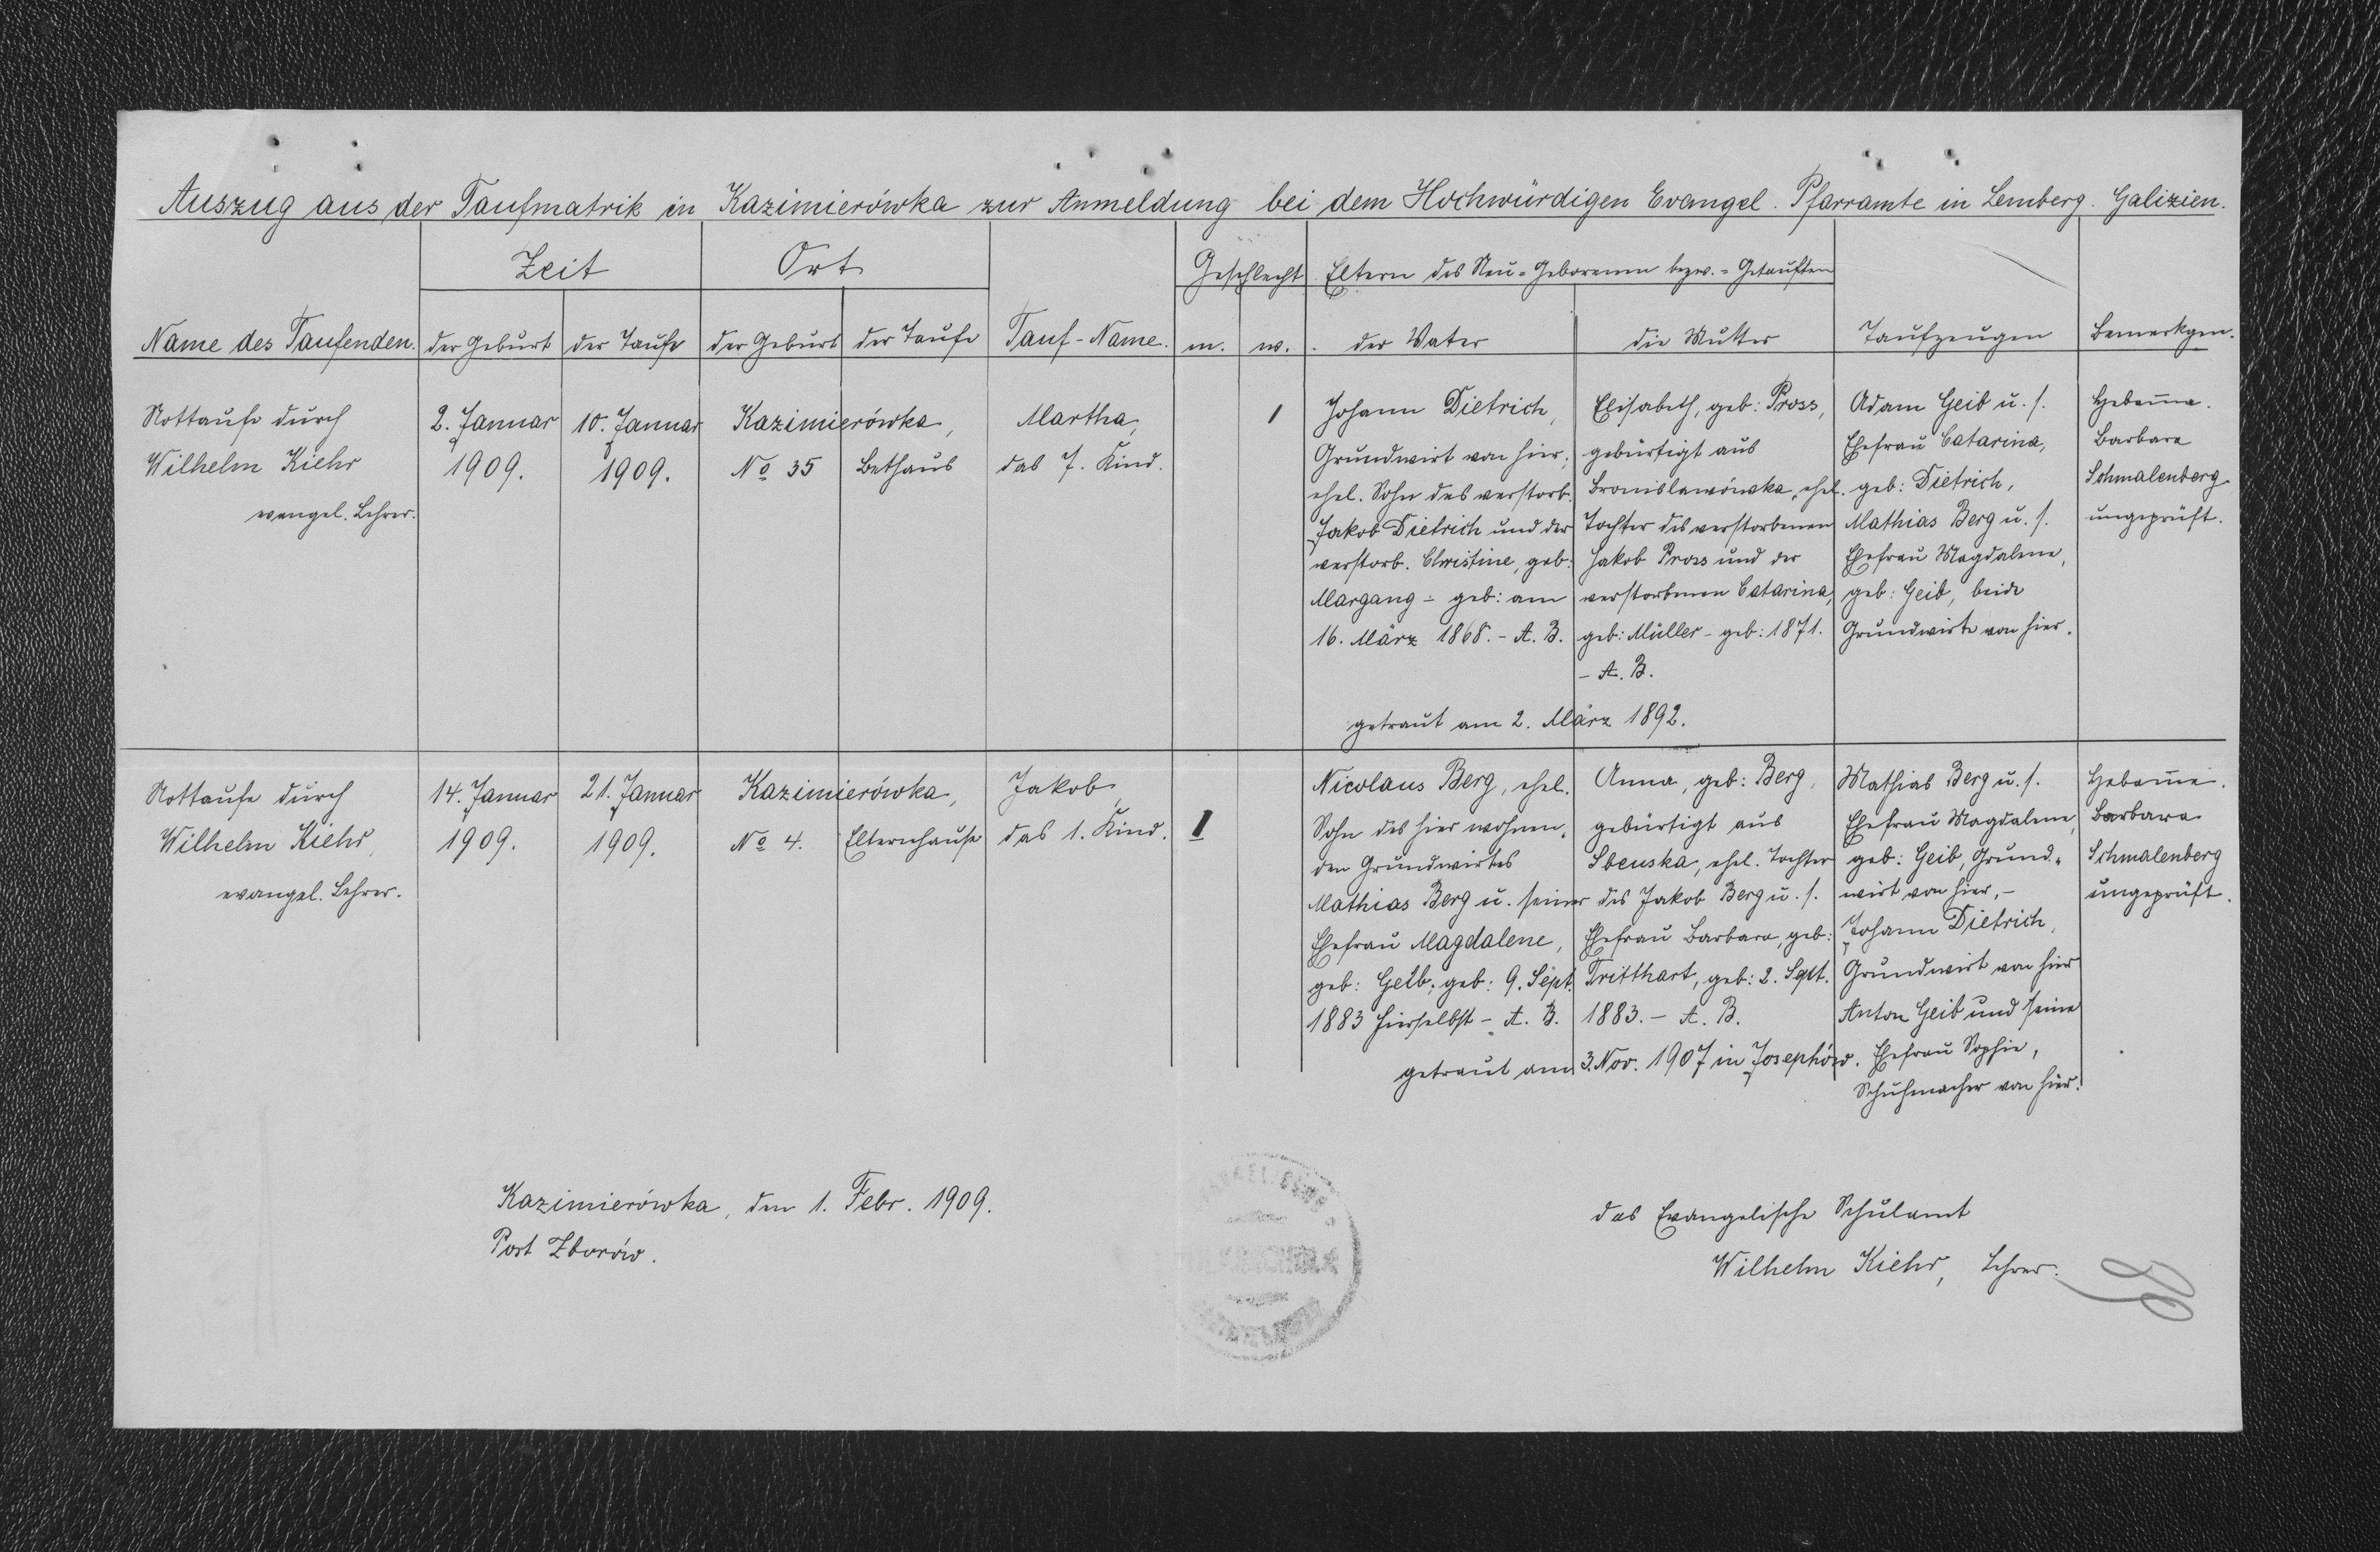 Auszug aus der Taufmatrik in Kazimierówka zur Anmeldung bei dem Hochwürdigen Evangel. Pfarramte in Lemberg. Galizien.
Zeit Ort Geschlecht Eltern des Neu-Geborenen bezw.-Getauften
Name des Taufenden. der Geburt der Taufe der Geburt der Taufe Tauf-Name. m. w. der Vater die Mutter Taufzeugen Bemerkgen.
Nottaufe durch
Wilhelm Kiehr
evangel. Lehrer.
2. Januar
1909.
10. Januar
1909.
Kazimierówka,
No 35 Bethaus
Martha,
das 7. Kind.
1
Johann Dietrich,
Grundwirt von hier;
ehel. Sohn des verstorb.
Jakob Dietrich und der
verstorb. Christine, geb:
Margang - geb: am
16. März 1868. - A. B.
Elisabeth, geb: Pross,
gebürtigt aus
Bronislawówka, ehel.
Tochter des verstorbenen
Jakob Pross und der
verstorbenen Catarina,
geb: Müller - geb: 1871.
- A. B.
getraut am 2. März 1892.
Adam Geib u. s.
Ehefrau Catarina,
geb: Dietrich,
Mathias Berg u. s.
Ehefrau Magdalene,
geb: Geib, beide
Grundwirte von hier.
Hebam̄e.
Barbara
Schmalenberg
ungeprüft.
Nottaufe durch
Wilhelm Kiehr,
evangel. Lehrer.
14. Januar
1909.
21. Januar
1909.
Kazimierówka,
No 4. Elternhause
Jakob,
das 1. Kind.
1
Nicolaus Berg, ehel.
Sohn des hier wohnen-
den Grundwirtes
Mathias Berg u. seiner
Ehefrau Magdalene,
geb: Geib; geb: 9. Sept.
1883 hierselbst - A. B.
Anna, geb: Berg,
gebürtigt aus
ehel. Tochter
des Jakob Berg u. s.
Ehefrau Barbara, geb:
Tritthart, geb: 2. Sept.
1883. - A. B.
getraut am 3. Nov. 1907 in Josephów.
Mathias Berg u. s.
Ehefrau Magdalene,
geb: Geib, Grund-
wirt von hier, -
Johann Dietrich,
Grundwirt von hier
Anton Geib und seine
Ehefrau Sophie,
Schuhmacher von hier.
Hebam̄e.
Barbara
Schmalenberg
ungeprüft.
Kazimierówka, den 1. Febr. 1909.
Post Zborów.
das Evangelische Schulamt
Wilhelm Kiehr, Lehrer.